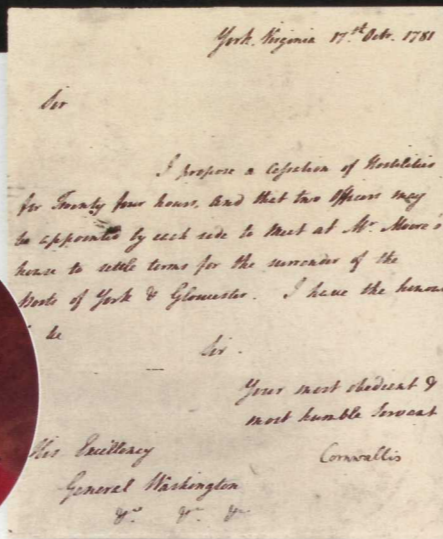 York, Virginia 17th Octr. 1781
Sir
I propose a Cessation of Hostilities
for Twenty four hours, and that two Officers may
be appointed by each side to meet at Mr. Moore's
house to settle terms for the surrender of the
Posts of York & Gloucester. I have the honour
to be
Sir.
Your most obedient &
most humble Servant
Cornwallis
His Excellency
General Washington
&c. &c. &c.